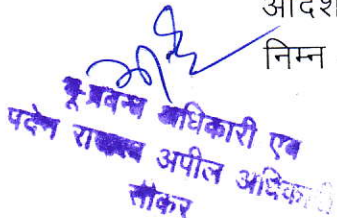 आदेश
निम्न
भू-प्रबन्ध अधिकारी एवं
पदेन राजस्व अपील अधिकारी
सीकर